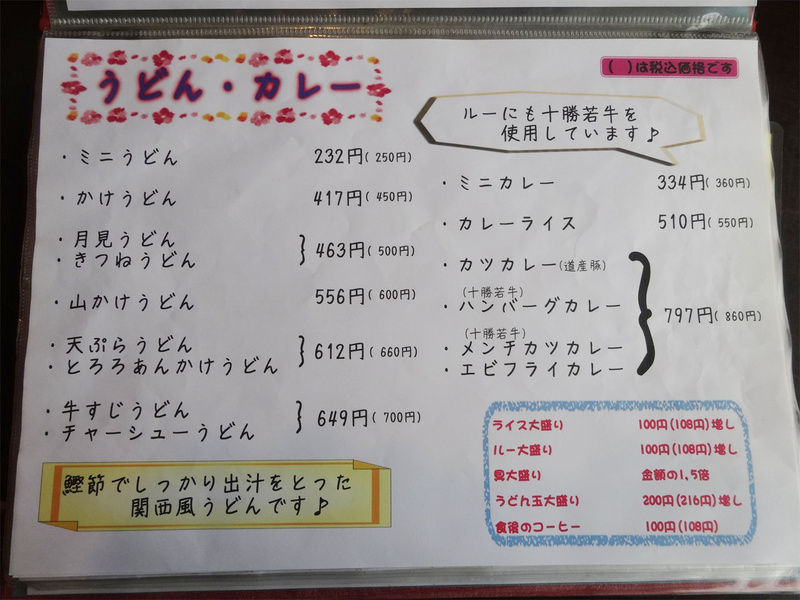 うどん・カレー
( )は税込価格です
ルーにも十勝若牛を
使用しています♪
・ミニうどん 232円(250円)
・かけうどん 417円(450円)
・月見うどん
・きつねうどん
463円(500円)
・山かけうどん 556円(600円)
・天ぷらうどん
・とろろあんかけうどん
612円(660円)
・牛すじうどん
・チャーシューうどん
649円(700円)
鰹節でしっかり出汁をとった
関西風うどんです♪
・ミニカレー 334円(360円)
・カレーライス 510円(550円)
・カツカレー(道産豚)
(十勝若牛)
・ハンバーグカレー
(十勝若牛)
・メンチカツカレー
・エビフライカレー
797円(860円)
ライス大盛り 100円(108円)増し
ルー大盛り 100円(108円)増し
具大盛り 金額の1,5倍
うどん玉大盛り 200円(216円)増し
食後のコーヒー 100円(108円)